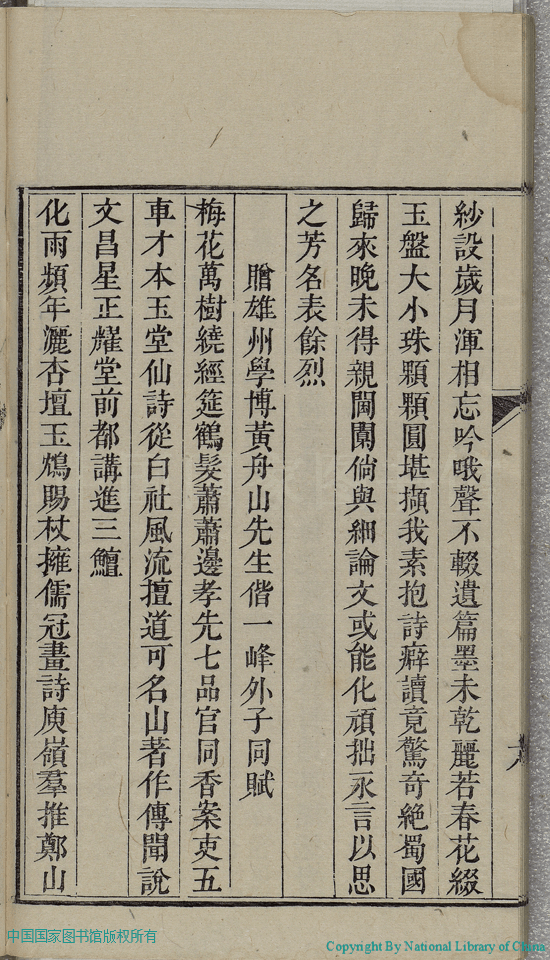 紗設歲月渾相忘吟哦聲不輟遺篇墨未乾麗若春花綴
玉盤大小珠顆顆圓堪擷我素抱詩癖讀竟驚奇絕蜀國
歸來晚未得親閫闈倘與細論文或能化頑拙永言以思
之芳名表餘烈
贈雄州學博黃舟山先生偕一峰外子同賦
梅花萬樹繞經筵鶴髮蕭蕭邊孝先七品官同香案吏五
車才本玉堂仙詩從白社風流擅道可名山著作傳聞說
文昌星正耀堂前都講進三鱣
化雨頻年灑杏壇玉鳩賜杖擁儒冠畫詩庾嶺羣推鄭山
中国国家图书馆版权所有
Copyright By National Library of China